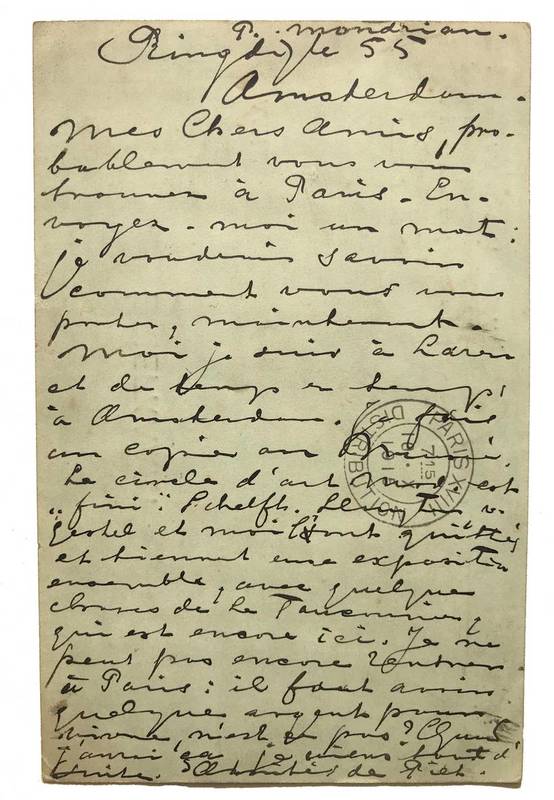 P. Mondrian.
Ringdijk 55
Amsterdam.
Mes Chers Amis, pro-
bablement vous vous
trouvez à Paris. En-
voyez-moi un mot:
je voudrais savoir
comment vous vous
portez, maintenant.
Moi je suis à Laren
et de temp en temp'
à Amsterdam. Je fais
un copie au
Le circle d'art mod. est
„fini". Schelfh. Sluyt. v.
Gestel et moi sont quittés
et tiennent une exposition
ensemble, avec quelque
choses de Le Fauconnier,
qui est encore ici. Je ne
peut pas encore rentrer
à Paris: il faut avoir
quelque argent pour
vivre, n'est ce pas? Quand
j'aurai ça je viens tout d'
suite. Amitiés de Piet.
PARIS XVIII
DISTRIBUTION
7 15